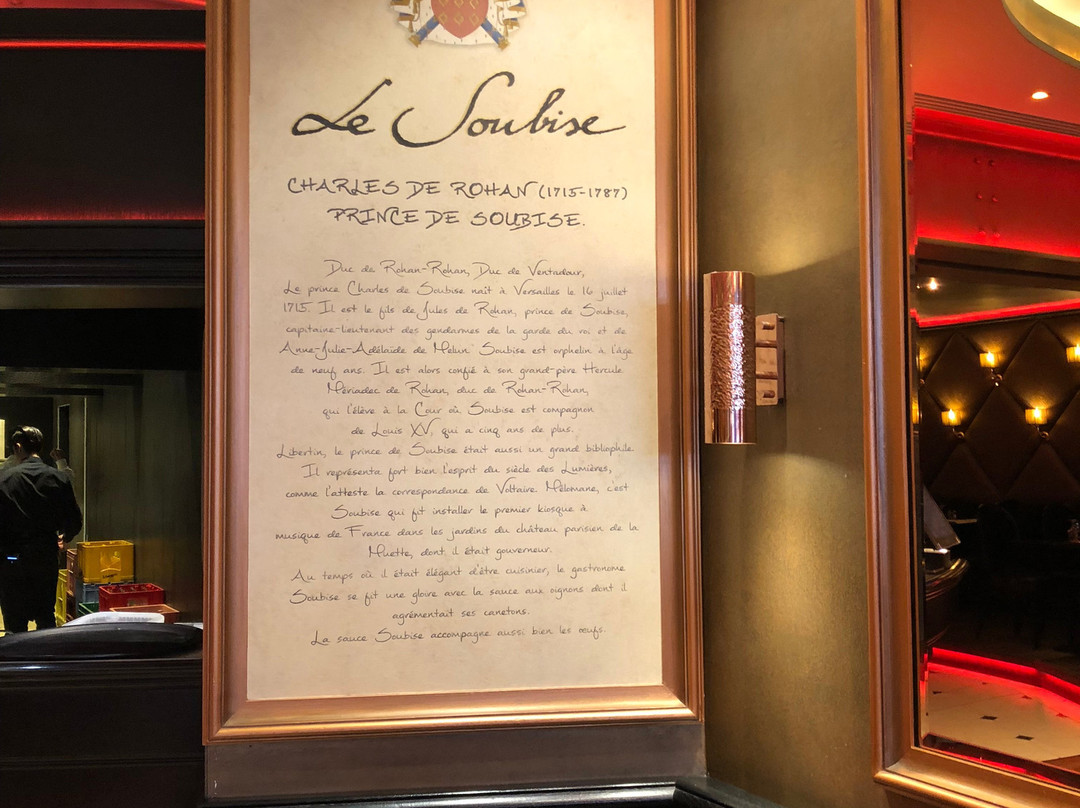 Le Soubise
CHARLES DE ROHAN (1715-1787)
PRINCE DE SOUBISE.
Duc de Rohan-Rohan, Duc de Ventadour,
Le prince Charles de Soubise naît à Versailles le 16 juillet
1715. Il est le fils de Jules de Rohan, prince de Soubise,
capitaine-lieutenant des gendarmes de la garde du roi et de
Anne-Julie-Adélaïde de Melun. Soubise est orphelin à l'âge
de neuf ans. Il est alors confié à son grand-père Hercule
Mériadec de Rohan, duc de Rohan-Rohan,
qui l'élève à la Cour où, Soubise est compagnon
de Louis XV, qui a cinq ans de plus.
Libertin, le prince de Soubise était aussi un grand bibliophile.
Il représenta fort bien l'esprit du siècle des Lumières,
comme l'atteste la correspondance de Voltaire. Mélomane, c'est
Soubise qui fit installer le premier kiosque à
musique de France dans les jardins du château parisien de la
Muette, dont il était gouverneur.
Au temps où il était élégant d'être cuisinier, le gastronome
Soubise se fit une gloire avec la sauce aux oignons dont il
agrémentait ses canetons.
La sauce Soubise accompagne aussi bien les œufs.